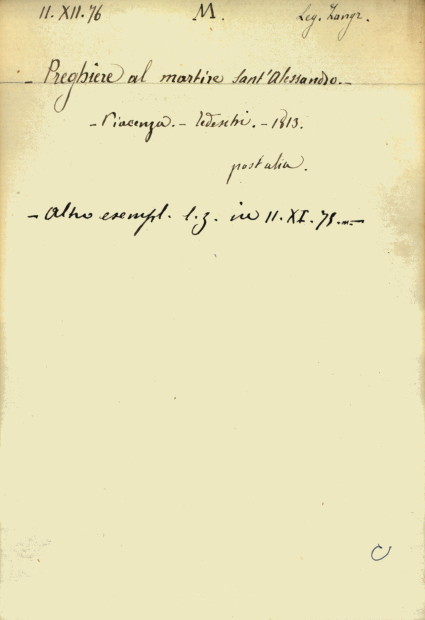 11. XII. 76 M. Leg. Zangr.
- Preghiere al martire Sant'Alessandro. -
- Piacenza. - Tedeschi. - 1813.
post alia.
- Altro esempl. l. z. in 11. XI. 75. m. -
C